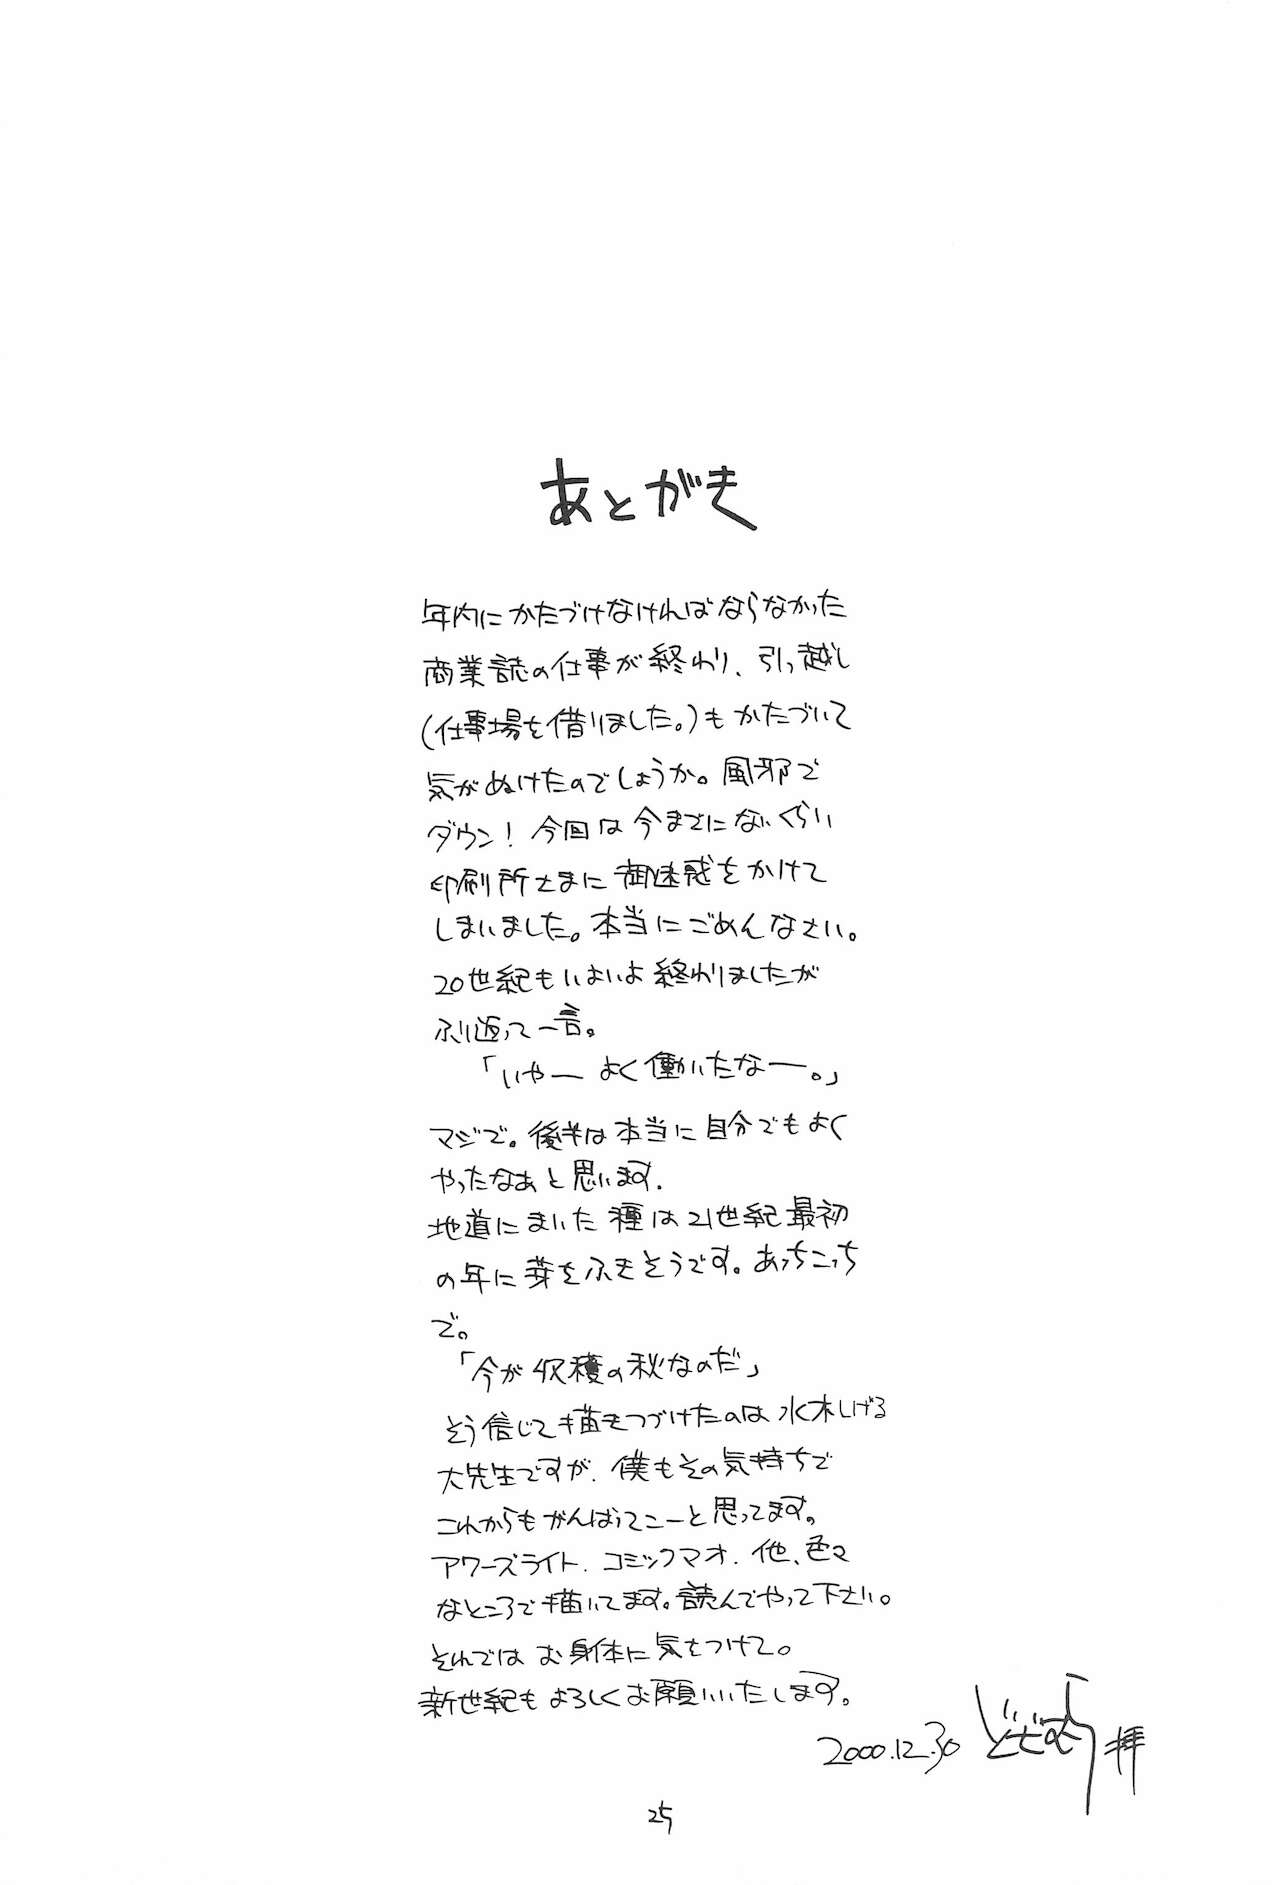 あとがき
年内にかたづけなければならなかった
商業誌の仕事が終わり、引っ越し
(仕事場を借りました。)もかたづいて
気がぬけたのでしょうか。風邪で
ダウン！今回は今までにないくらい
印刷所さまに御迷惑をかけて
しまいました。本当にごめんなさい。
20世紀もいよいよ終わりましたが
ふり返って一言。
「いやー よく働いたなー。」
マジで。後半は本当に自分でもよく
やったなあと思います。
地道にまいた種は21世紀最初
の年に芽をふきそうです。あっちこっち
で。
「今が収穫の秋なのだ」
そう信じて描きつづけたのは水木しげる
大先生ですが、僕もその気持ちで
これからもがんばってこーと思ってます。
アワーズライト、コミックマオ、他、色々
なところで描いてます。読んでやって下さい。
それではお身体に気をつけて。
新世紀もよろしくお願いいたします。
2000.12.30 拝
25